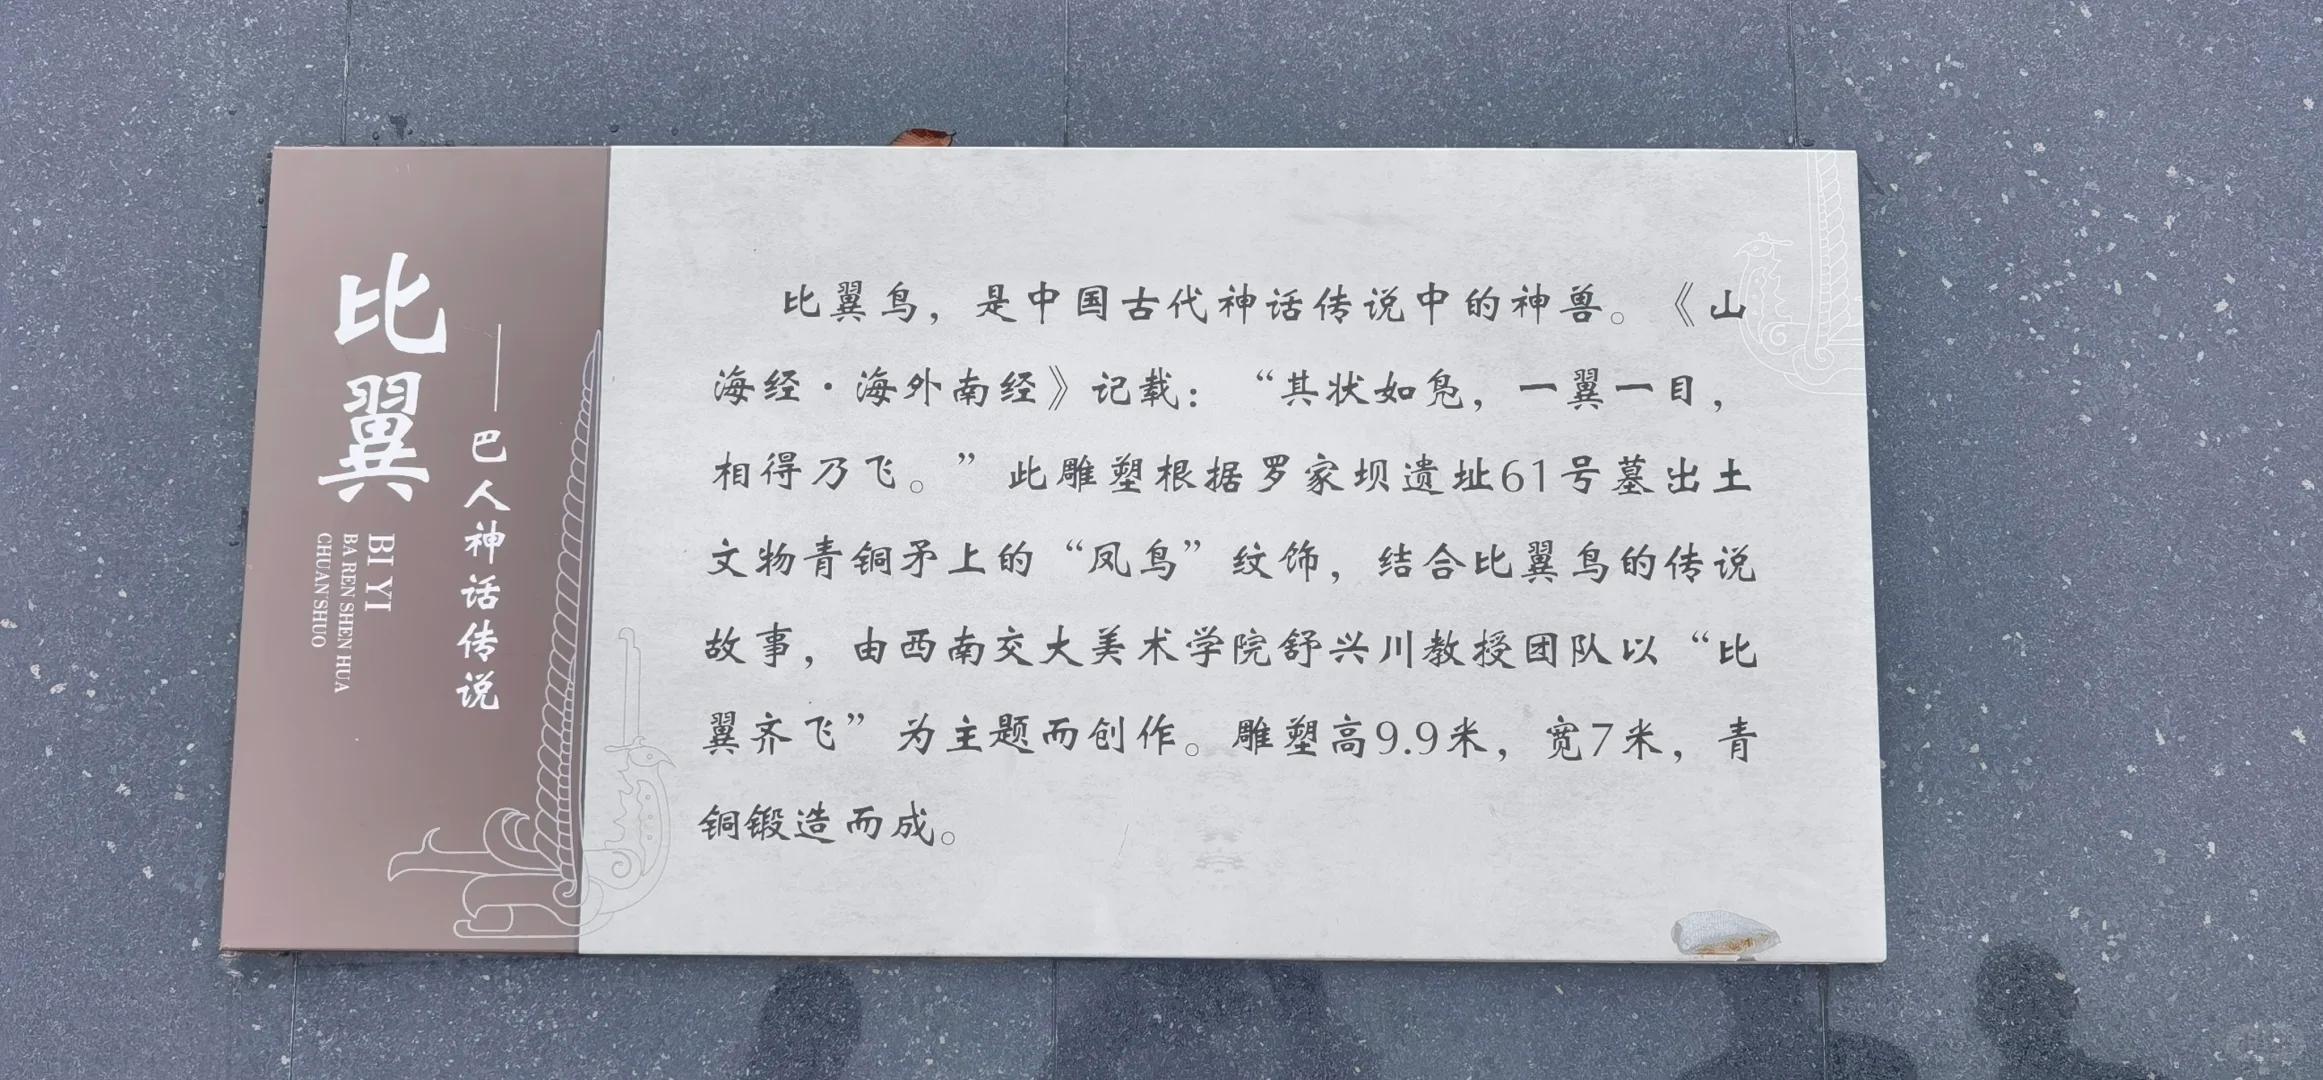 比翼
——巴人神话传说
BI YI
BA REN SHEN HUA
CHUAN SHUO
比翼鸟，是中国古代神话传说中的神兽。《山
海经·海外南经》记载：“其状如凫，一翼一目，
相得乃飞。”此雕塑根据罗家坝遗址61号墓出土
文物青铜矛上的“凤鸟”纹饰，结合比翼鸟的传说
故事，由西南交大美术学院舒兴川教授团队以“比
翼齐飞”为主题而创作。雕塑高9.9米，宽7米，青
铜锻造而成。